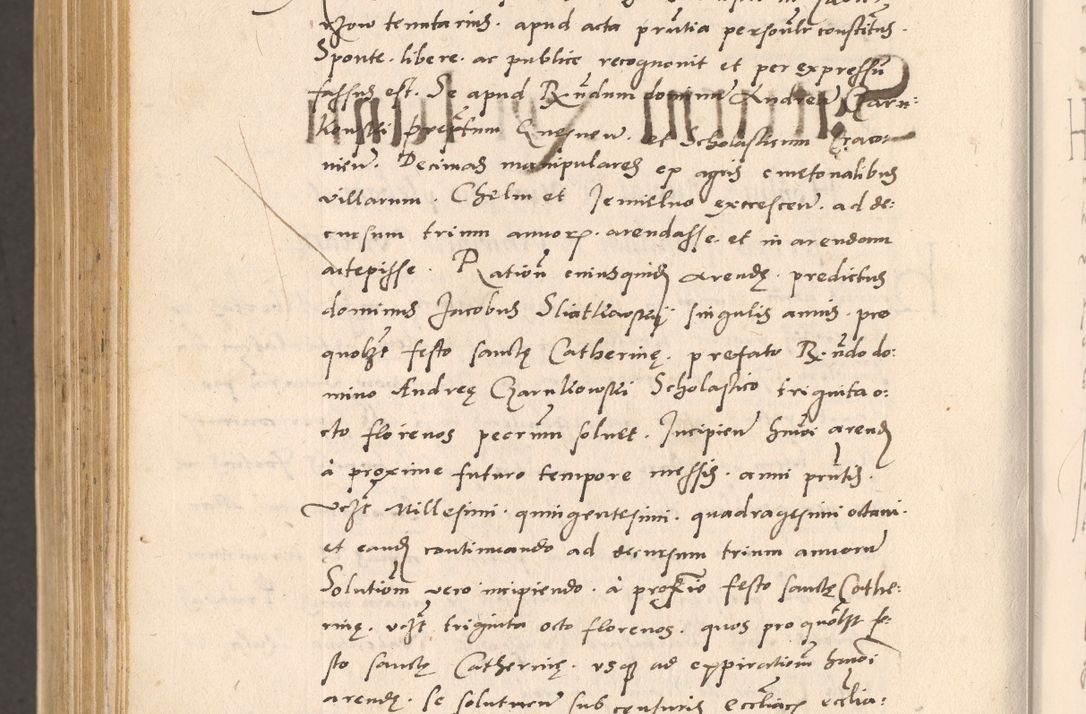 tenutarius. apud acta prñtia personalr constitus.
Sponte. libere. ac publice recognovit et per expressũ
fassus est. Se apud R̃ndum dominũ Andreã Czarn:
kowski preptum Gnesneñ. et Scholasticum Craco:
vieñ. Decimas manipulares ex agris cmetonalibus
villarum. Chelm et Jemielno excresceñ. ad de:
cursum trium annorꝝ. arendasse. et in arendam
accepisse. Rationẽ cuiusquidẽ arendę. predictus
dominus Jacobus Sliatkowskij singulis annis. pro
quolꝫt festo sanctę Catherinę. prefato R̃ndo do:
mino Andreę Czarnkowski Scholastico triginta o:
cto florenos pecuñ solvet. Incipieñ hmõi arendã
à proxime futuro tempore messis. anni prñtis.
vcꝫt Millesimi. quingentesimi. quadragesimi octavi.
et eandẽ continuando ad decursum trium annorũ
Solutionẽ vero incipiendo. à proximo festo sanctę Cathe:
rinę. vcꝫt triginta octo florenos. quos pro quolꝫt fe:
sto sanctę Catherinę. usque ad expirationẽ hmõi
arendę. se soluturũ sub censuris ecclïacis ecclia: